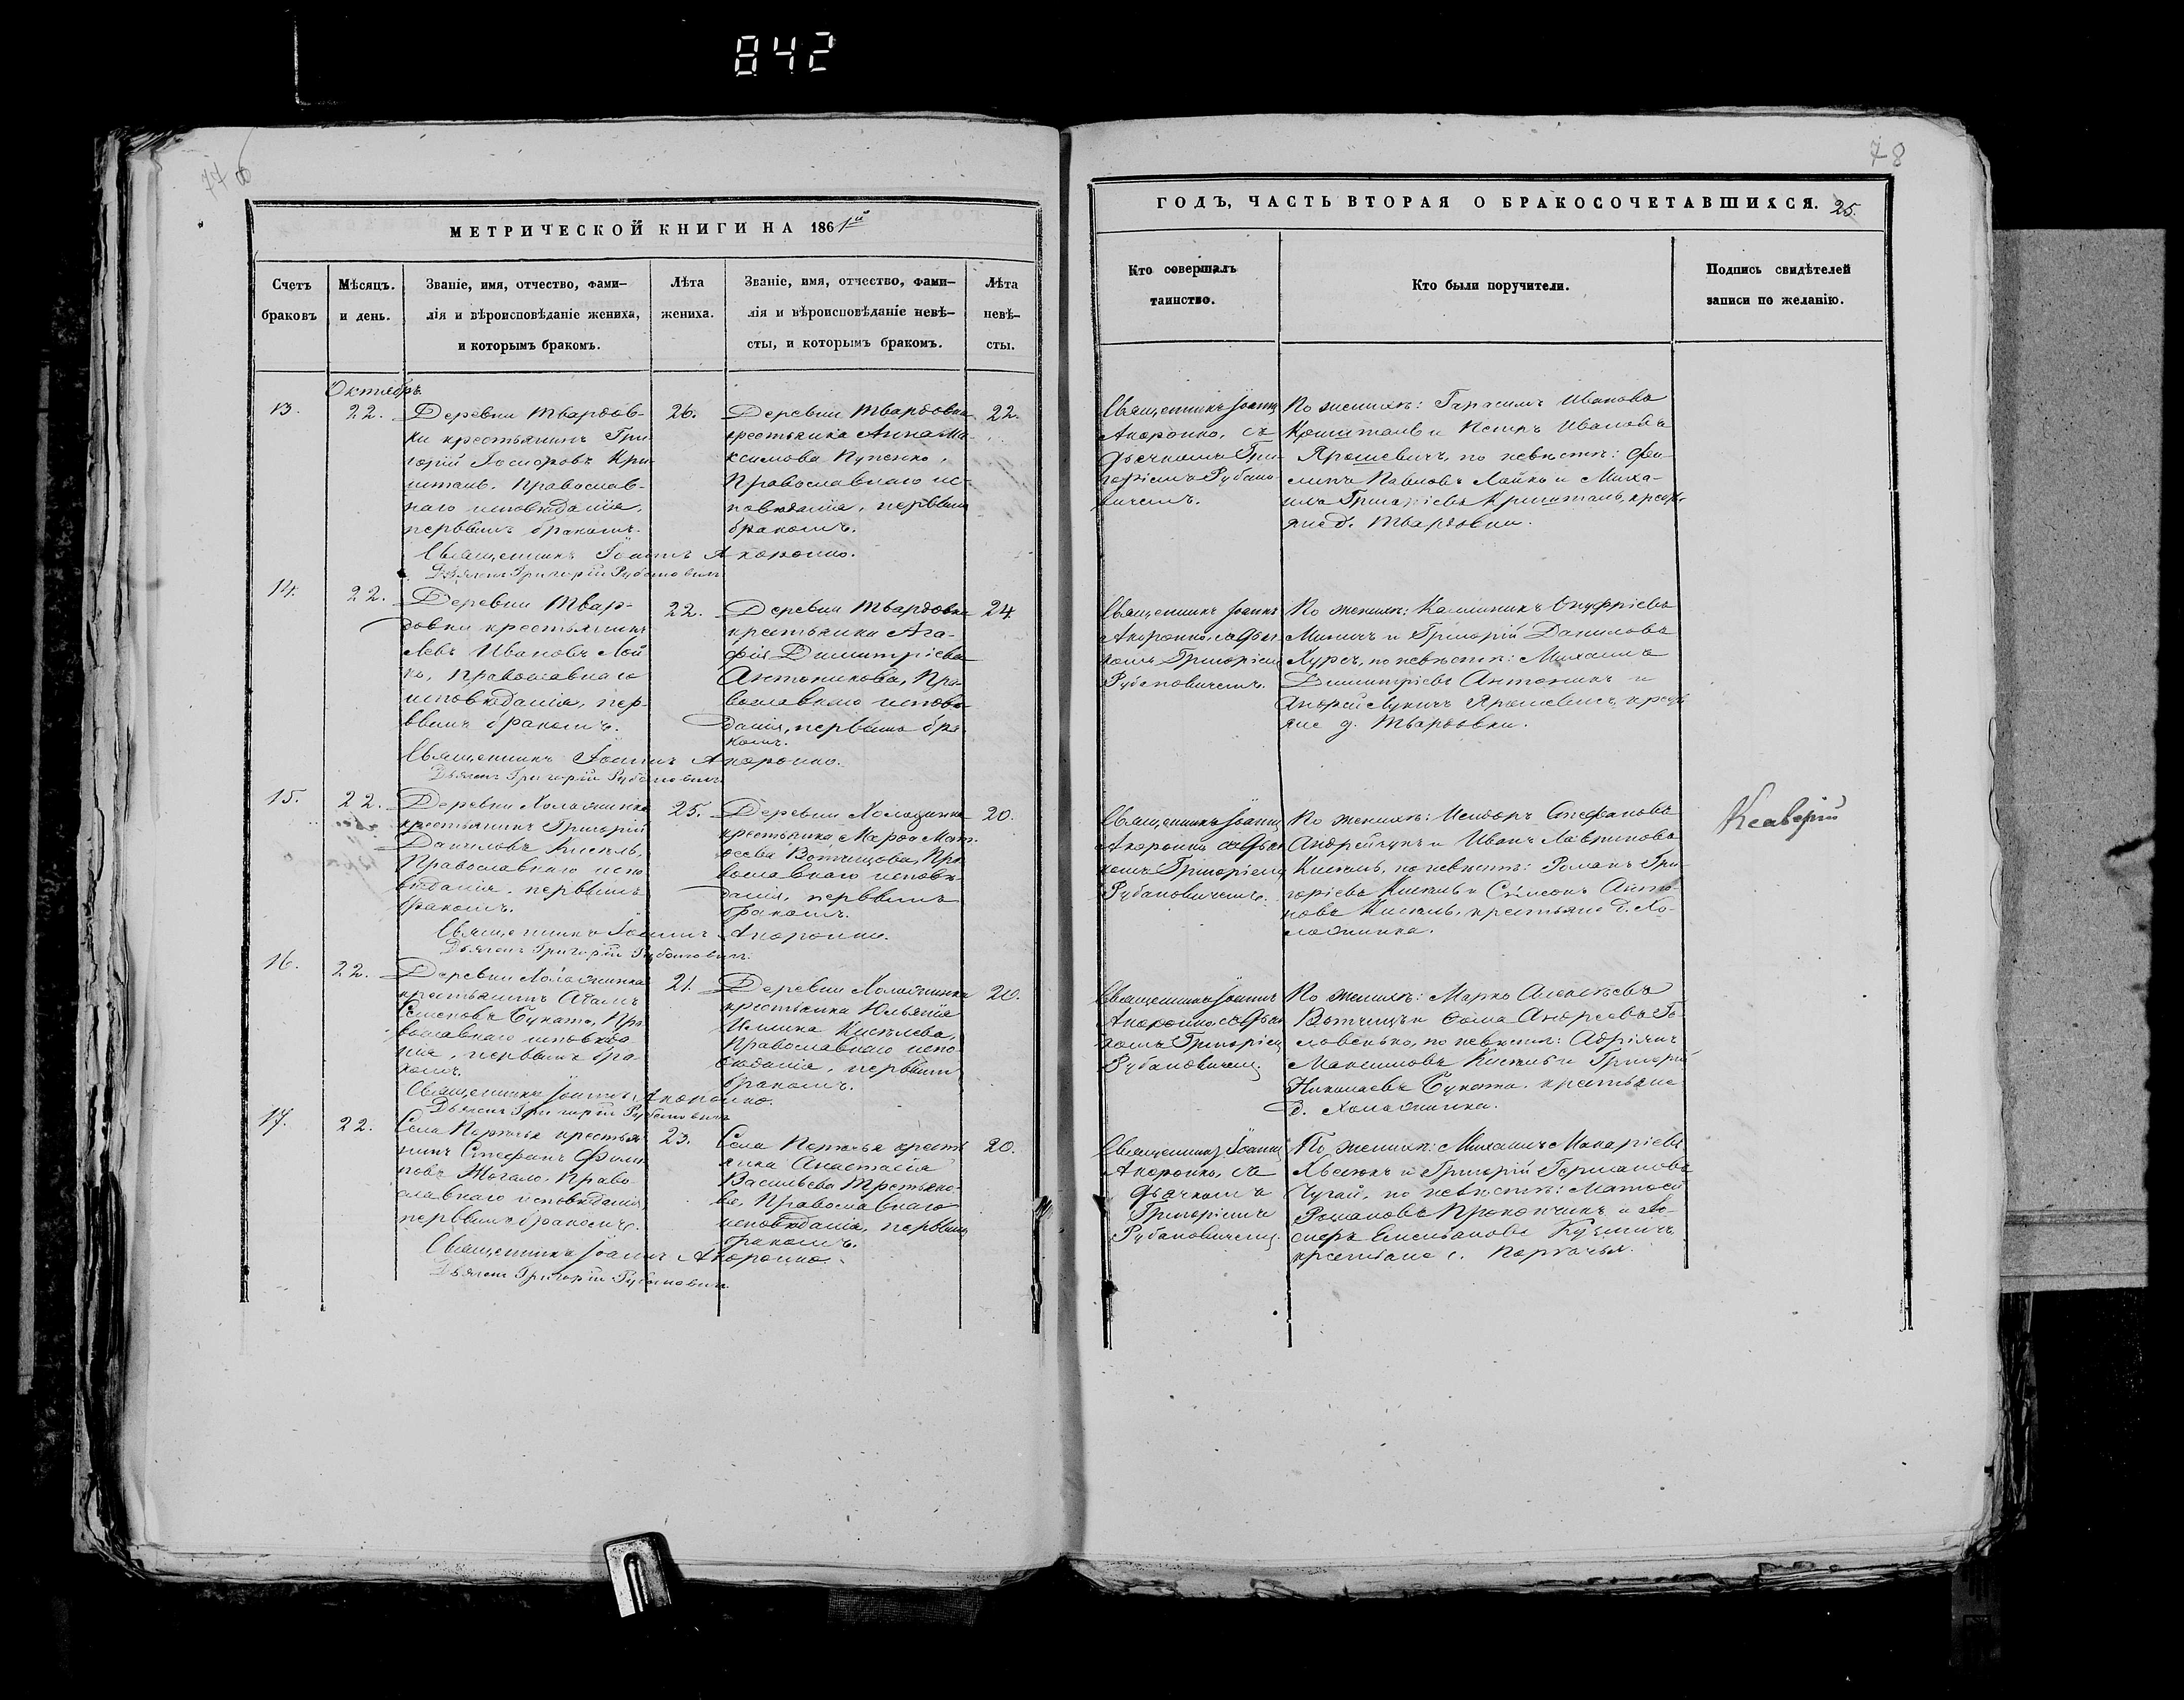 842
77 об
МЕТРИЧЕСКОЙ КНИГИ НА 1861й
Счетъ браковъ
Мѣсяцъ. и день.
Званіе, имя, отчество, фами-
лія и вѣроисповѣданіе жениха,
и которымъ бракомъ.
Лѣта
жениха.
Званіе, имя, отчество, фами-
лія и вѣроисповѣданіе невѣ-
сты, и которымъ бракомъ.
Лѣта
невѣ-
сты.
Октябрь
13.
22.
Деревни Твардов-
ки крестьянинъ Гри-
горій Іосифовъ Кри-
штань, Православ-
наго исповѣданія,
первымъ бракомъ.
26.
Деревни Твардовки
крестьянка Анна Ма-
ксимова Пупенко,
Православнаго ис-
повѣданія, первымъ
бракомъ.
22.
Священникъ Іоаннъ
Дьячекъ Григорій Рубановичъ
14.
22.
Деревни Твар-
довки крестьянинъ
Левъ Ивановъ Лой
ко, Православнаго
исповѣданія, пер-
вымъ бракомъ.
22.
Деревни Твардовки
крестьянка Ага-
фія Димитріева
Антоникова, Пра-
вославнаго исповѣ-
данія, первымъ бра-
комъ.
24.
Священникъ Іоаннъ
Дьячекъ Григорій Рубановичъ
15.
22.
Деревни Холадника
крестьянинъ Григорій
Даниловъ Кисель,
Православнаго испо
вѣданія, первымъ
бракомъ.
25.
Деревни Холадника
крестьянка Марфа Мат-
феева Вотчицова, Пра
вославнаго исповѣ-
данія, первымъ
бракомъ.
20.
Священникъ Іоаннъ
Дьячекъ Григорій Рубановичъ.
16.
22.
Деревни Холадника
крестьянинъ Адамъ
Семеновъ Буката, Пра
вославнаго исповѣда
нія, первымъ бра-
комъ.
21.
Деревни Холадника
крестьянка Юліанія
Киселева,
Православнаго испо-
вѣданія, первымъ
бракомъ.
20.
Священникъ Іоаннъ
Дьячекъ Григорій Рубановичъ
17.
22.
Села Порѣчья крестья
нинъ Стефанъ Филип
повъ Жогало, Право-
славнаго исповѣданія,
первымъ бракомъ.
23.
Села Порѣчья кресть
янка Анастасія
Васильева Третьяко-
ва, Православнаго
исповѣданія, первымъ
бракомъ.
20.
Священникъ Іоаннъ
Дьячекъ Григорій Рубановичъ.
78
ГОДЪ, ЧАСТЬ ВТОРАЯ О БРАКОСОЧЕТАВШИХСЯ. 25.
Кто совершалъ
таинство.
Кто были поручители.
Подпись свидѣтелей
записи по желанію.
Священникъ Іоаннъ
съ
дьячкомъ Гри-
горіемъ Рубано-
вичемъ.
По женихѣ: Гарасимъ Ивановъ
Криштань и Петръ Ивановъ
Ярошевичъ, по невѣстѣ: Фи-
липъ Павловъ Лойко и Миха-
илъ Григоріевъ Криштань, крестья-
не д. Твардовки.
Священникъ Іоаннъ
съ дьяч
комъ Григоріемъ
Рубановичемъ.
По женихѣ: Калиникъ Онуфріевъ
и Григорій Даниловъ
Курсъ, по невѣстѣ: Михаилъ
Димитріевъ Антоникъ и
Андрей Ярошевичъ, крестья
не д. Твардовки.
Священникъ Іоаннъ
съ дьяч
комъ Григоріемъ
Рубановичемъ.
По женихѣ: Исидоръ Стефановъ
Андрейчукъ и Иванъ Лавриновъ
Кисель, по невѣстѣ: Романъ Гри-
горіевъ Кисель и Симеонъ Анто-
новъ Кисель, крестьяне д. Хо-
ладника.
Ксаверій
Священникъ Іоаннъ
съ дьяч
комъ Григоріемъ
Рубановичемъ.
По женихѣ: Марко Алексѣевъ
Вотчицъ и Фома Андреевъ Го-
ловенько, по невѣстѣ: Адріанъ
Максимовъ Кисель и Григорій
Николаевъ Буката, крестьяне
д. Холадника.
Священникъ Іоаннъ
съ
дьячкомъ
Григоріемъ
Рубановичемъ.
По женихѣ: Михаилъ Макаріевъ
и Григорій Германовъ
Чугай, по невѣстѣ: Матфей
Романовъ Прокопчикъ и Іо-
сифъ Кузмичъ
крестьяне с. Порѣчья.